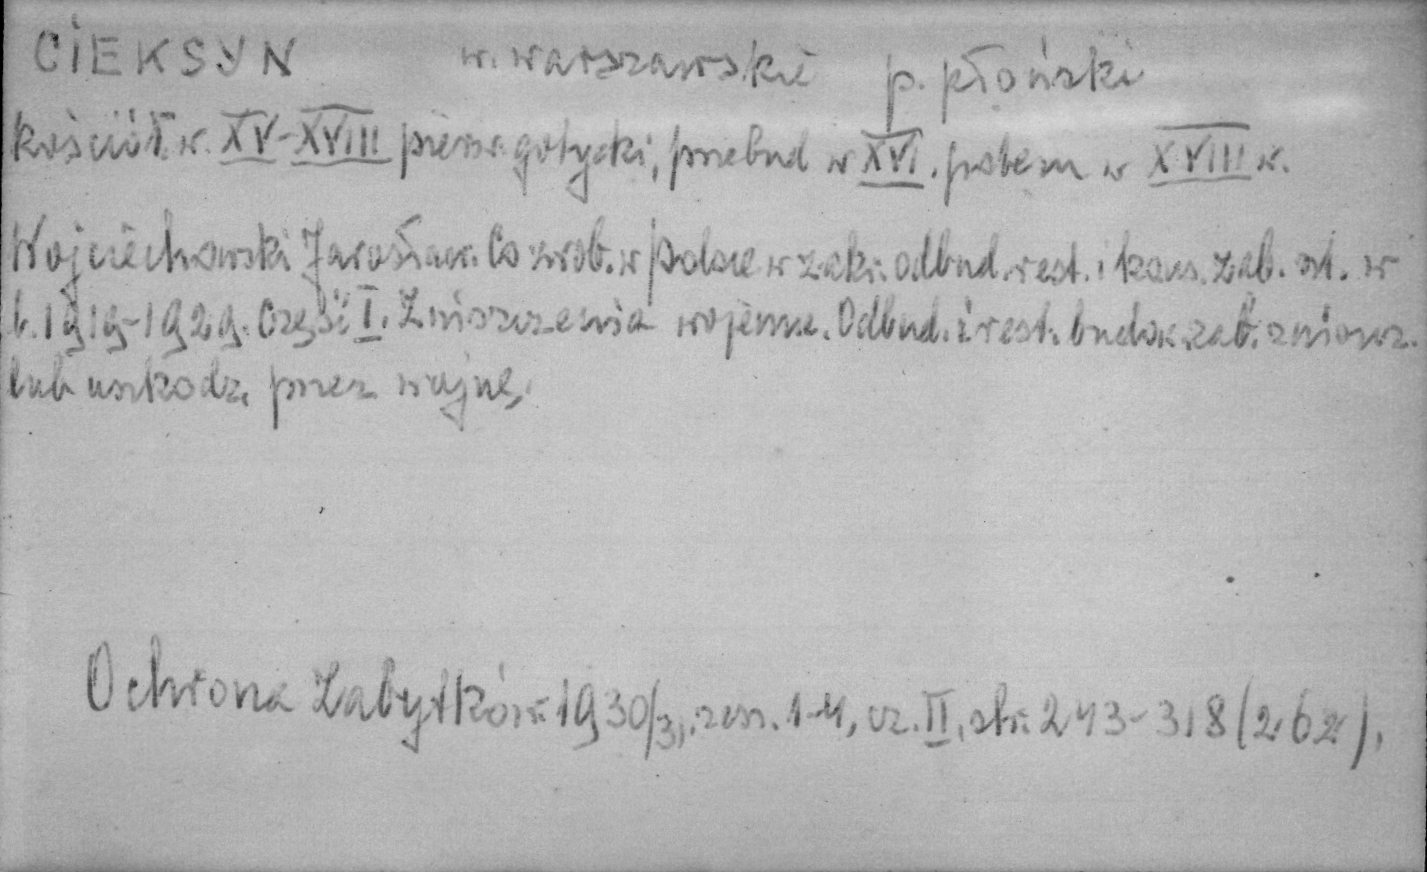 CIEKSYN w. warszawskie p. płoński
kościół. w. XV-XVIII pierw. gotycki, przebud w XVI. potem w XVIII w.
Wojciechowski Jarosław. Co zrob. w Polsce w zakr. odbud. rest. i kons. zab. szt. w
l. 1919-1929. Część I. Zniszczenia wojenne. Odbud. i rest. budow. zab. zniszcz.
lub uszkodz. przez wojnę.
Ochrona Zabytków 1930/31. zesz. 1-4, cz. II, str. 243-318 (262).